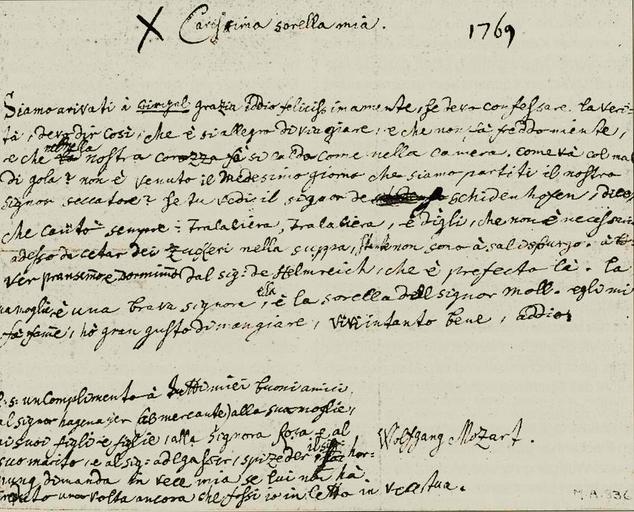 X Carissima sorella mia. 1769
Siamo arivati à Wirgel grazia iddio felicissimamente, se devo confessare la veri-
tà, devo dir cosi, che è si allegro di viaggiare, e che non fà freddo niente,
e che nella nostra carozza fà si caldo come nella camera, come và col mal
di gola? non è venuto il medesimo giorno che siamo partiti il nostro
signor seccatore? se tu vedi il signor de schidenhofen, dice,
che canto sempre: Tralaliera, Tralaliera, e digli, che non è necessario
adesso di cetar dei zuceri nella suppa, non sono à salisburgo. à
ver pransimo, e dormimo dal sig: de Helmreich, che è prefecto là. la
sua moglie è una brava signora, è la sorella dell signor moll. egli mi
fà fame, hò gran gusto di mangiare, vivi intanto bene, addio
p: s: un complimento à tutti miei buoni amici,
al signor hagenauer (il mercante) alla sua moglie,
ai suoi figli e figlie, alla signora Rosa e al
suo marito, e al sig: adlgasser, spizeder il sig: hor-
nung dimanda in vece mia se lui non hà
creduto una volta ancora che fossi io in letto in vece tua.
Wolfgang Mozart.
M.A. 336